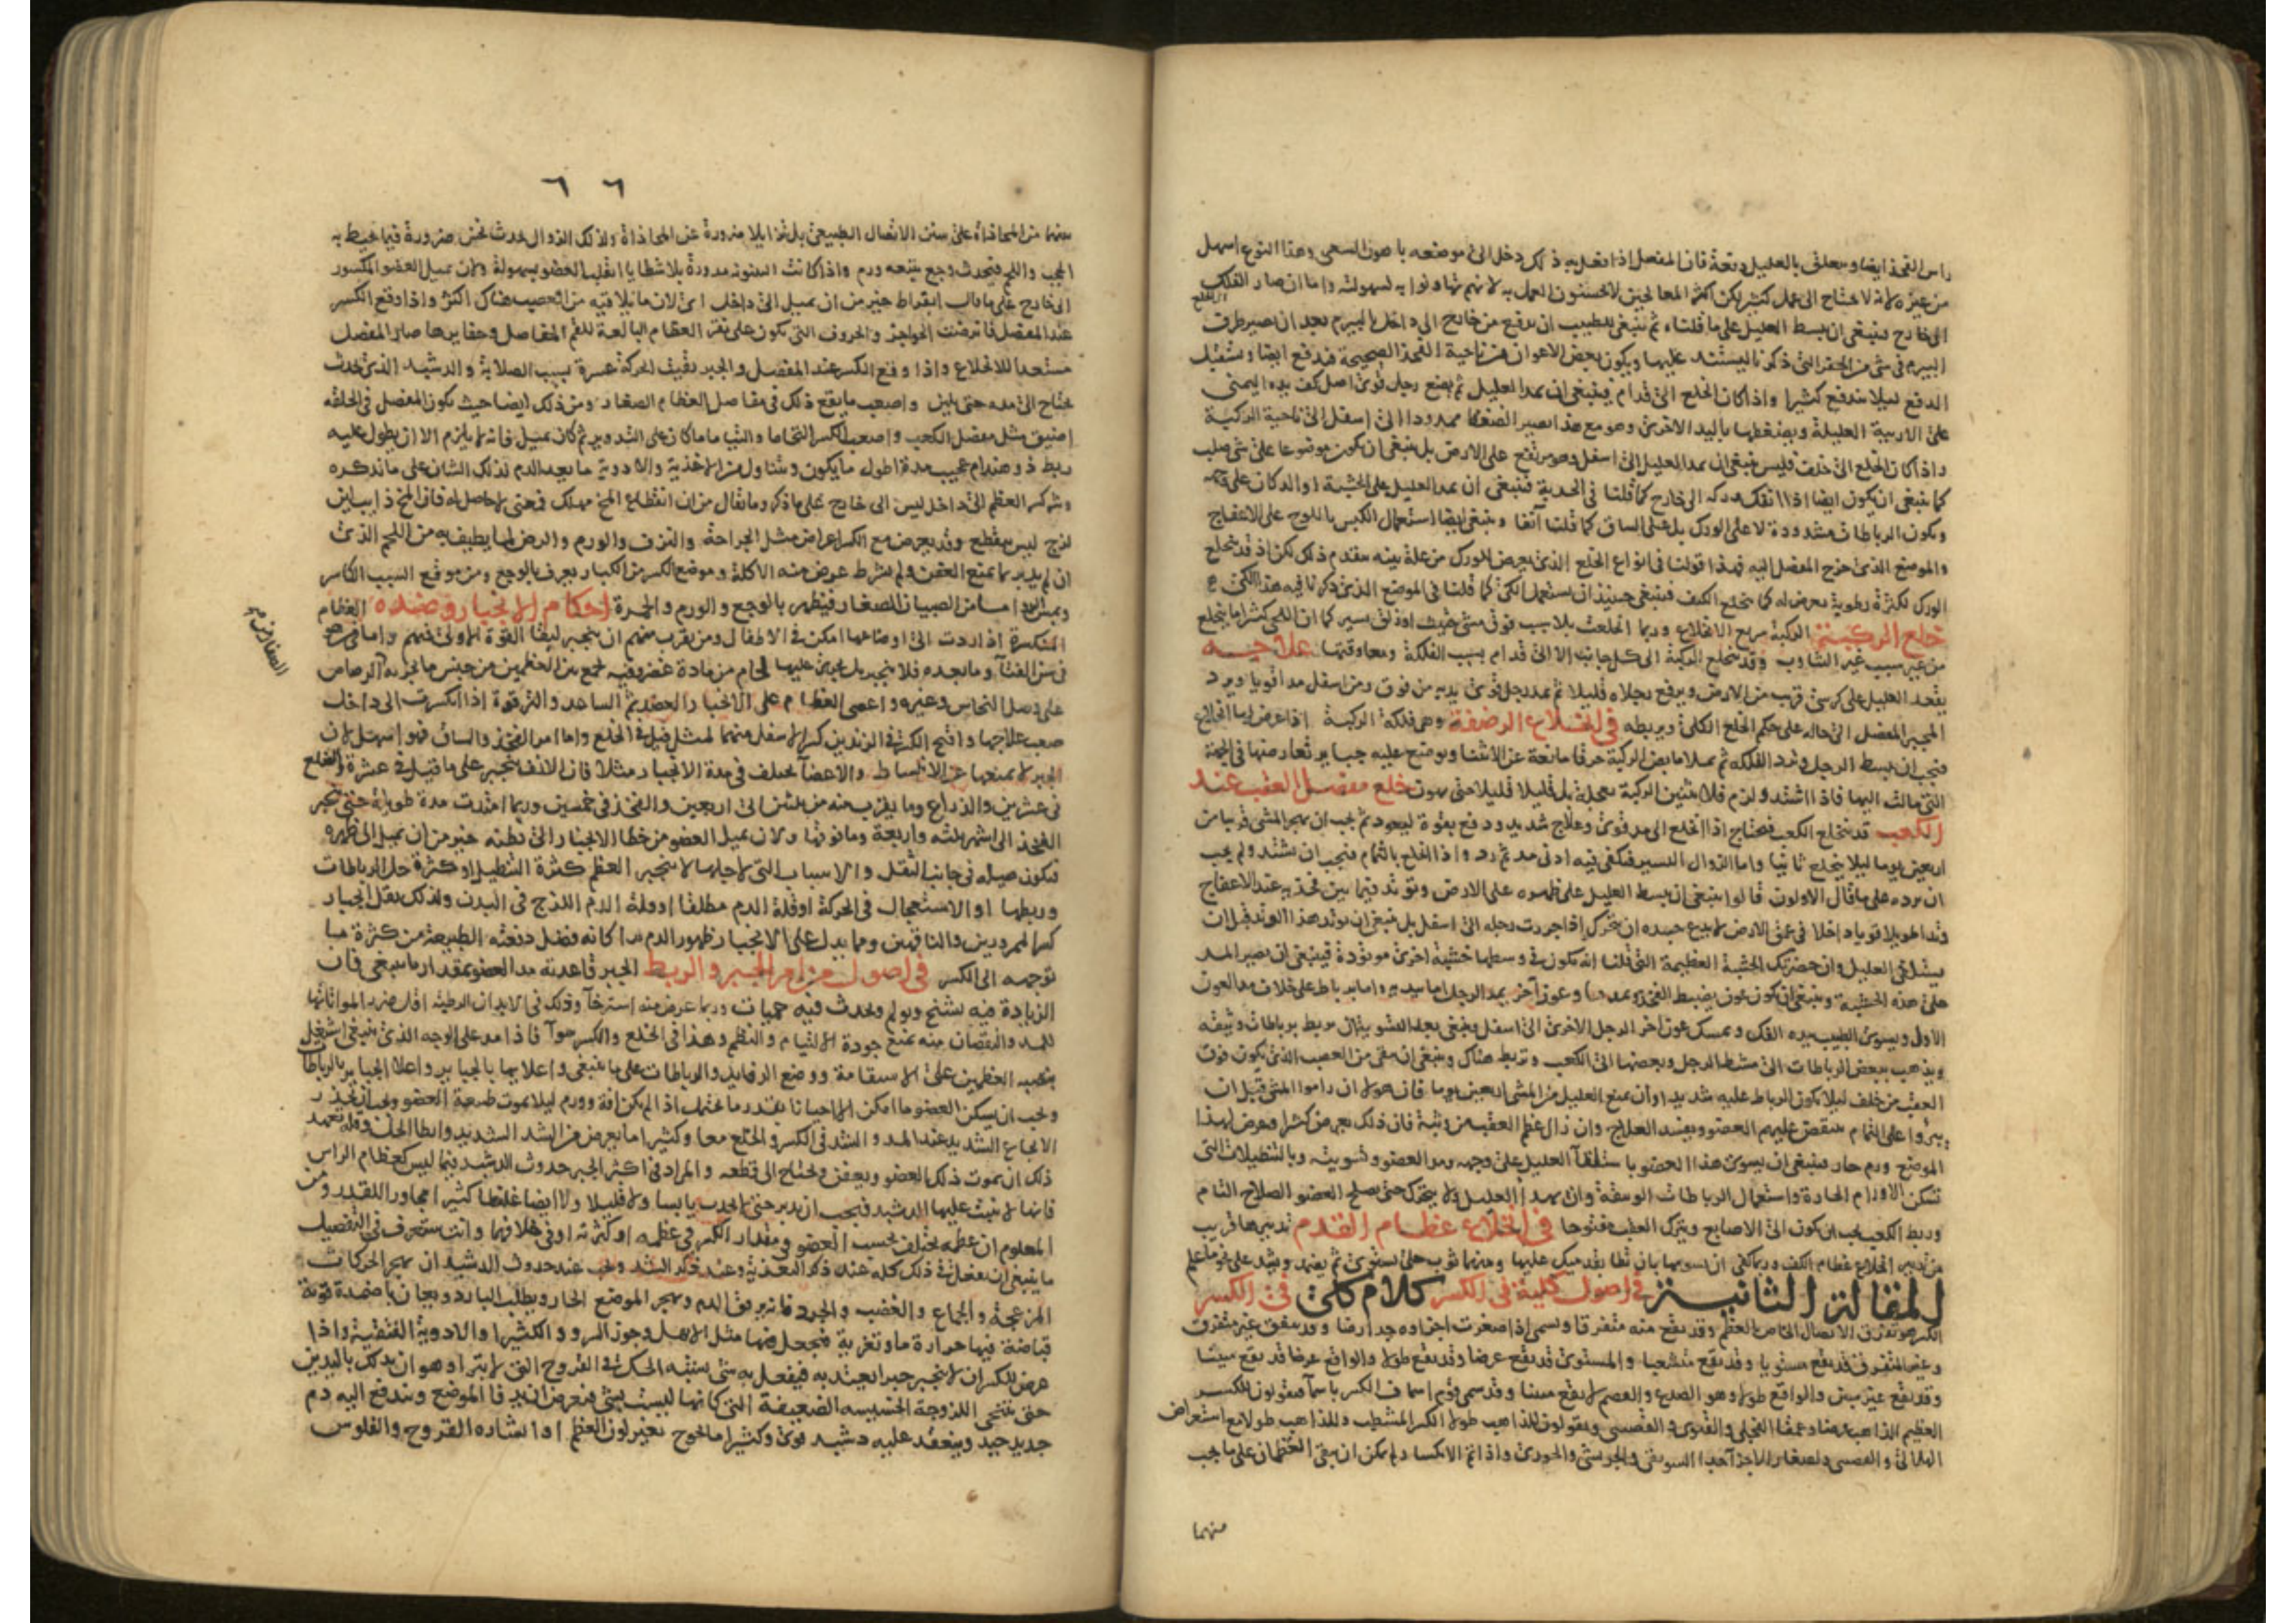 راس الفخذ ايضا ويعلق بالعليل دفعة فان المفصل اذا فعل به ذلك دخل الى موضعه باهون السعى وهذا النوع اسهل
من غيره لانه لا يحتاج الى عمل كثير لكن اكثر المعالجين لا يحسنون العمل به لانهم تهاونوا به لسهولته واما ان صار الفلك
الى خارج فينبغى ان يبسط العليل على ما قلنا ثم ينبغى للطبيب ان يدفع من خارج الى داخل بالبيرم بعد ان يصير طرف
البيرم فى شى من الحفر التى ذكرنا ليستند عليها ويكون بعض الاعوان من ناحية الفخذ الصحيحة فيدفع ايضا ويستقبل
الدفع ليلا يندفع كثيرا واذا كان الخلع الى قدام فينبغى ان يمد العليل ثم يضع رجل قوى اصل كف يده اليمنى
على الاربية العليلة ويضغطها باليد الاخرى وهو مع هذا يصير الضغط ممدودا الى اسفل الى ناحية الركبة
واذا كان الخلع الى خلف فليس ينبغى ان يمد العليل الى اسفل وهو مرتفع على الارض بل ينبغى ان يكون موضوعا على شى صلب
كما ينبغى ان يكون ايضا اذا انفك وركه الى خارج كما قلنا فى الحدبة فينبغى ان يمد العليل على الخشبة او الدكان على وجهه
ويكون الرباطات مشدودة لا على الورك بل على الساق كما قلنا آنفا وينبغى ايضا استعمال الكبس باللوح على الانفتاح
والموضع الذى خرج المفصل اليه فهذا قولنا فى انواع الخلع الذى يعرض للورك من علة بينه متقدم ذلك لكن اذ قد ينخلع
الورك لكثرة رطوبة يعرض له كما ينخلع الكتف فينبغى حينئذ ان يستعمل الكى كما قلنا فى الموضع الذى ذكرنا فيه هذا الكى
خلع الركبة الركبة سريع الانخلاع وربما انخلعت بلا سبب فوق مشى حثيث او زلق يسير كما ان اللحى كثيرا ما ينخلع
من غير سبب غير التثاوب وقد ينخلع الركبة الى كل جانب الا الى قدام بسبب الفلكة ومعاوقتها علاجه
يقعد العليل على كرسى قريب من الارض ويرفع رجلاه قليلا ثم يمد رجل قوى يديه من فوق ومن اسفل مدا قويا ويرد
المجبر المفصل الى حاله على حكم الخلع الكلى ويربطه فى انقلاع الرضفة وهى فلكة الركبة اذا عرض لها انخلاع
فيجب ان يبسط الرجل وترد الفلكة ثم يملا مابض الركبة خرقا مانعة عن الانثنا ويوضع عليه جباير تعارضها فى الجهة
التى مالت اليها فاذا اشتد ولزم فلا يثنين الركبة بعجلة بل قليلا قليلا حتى يهون خلع مفصل العقب عند
الكعب قد ينخلع الكعب فيحتاج اذا انخلع الى مد قوى وعلاج شديد ودفع بقوة ليعود ثم يجب ان يهجر المشى قريبا من
اربعين يوما ليلا ينخلع ثانيا واما الزوال اليسير فيكفى فيه ادنى مد ثم رد واذا انخلع بالتمام فيجب ان يشتد ولم يجب
ان يرده على ما قال الاولون قالوا ينبغى ان يبسط العليل على ظهره على الارض ويوتد فيما بين فخذيه عند الاعفاج
وتدا طويلا قويا داخلا فى عمق الارض لا يدع جسده ان يتحرك اذا جررت رجله الى اسفل بل ينبغى ان يوتد هذا الوتد قبل ان
يستلقى العليل وان حضرتك الخشبة العظيمة التى قلنا انه يكون فى وسطها خشبة اخرى موتودة فينبغى ان يصير المد
على هذه الخشبة وينبغى ان يكون عون يضبط الفخذ ويمده وعون آخر يمد الرجل اما بيديه واما برباط على خلاف مد العون
الاول ويسوى الطبيب بيده الفك ويمسك عون اخر الرجل الاخرى الى اسفل ينبغى بعد التسوية ان يربط برباطات وثيقه
ويذهب ببعض الرباطات الى مشط الرجل وبعضها الى الكعب وتربط هناك وينبغى ان يتقى من العصب الذى يكون فوق
العقب من خلف ليلا يكون الرباط عليه شديدا وان يمنع العليل من المشى اربعين يوما فان هولا ان راموا المشى قبل ان
يبروا على التمام ينتقض عليهم العضو ويفسد العلاج وان زال عظم العقب من وثبة فان ذلك يعرض كثيرا وعرض لهذا
الموضع ورم حار فينبغى ان يسوى هذا العضو باستلقآ العليل على وجهه ومد العضو وتسويته وبالتنطيلات التى
تسكن الاورام الحادة واستعمال الرباطات الموافقة وان يهدأ العليل ولا يتحرك حتى يصلح العضو الصلاح التام
وربط الكعب يجب ان يكون الى الاصابع ويترك العقب مفتوحا فى انخلاع عظام القدم تدبيرها قريب
من تدبير انخلاع عظام الكف وربما كفى ان يسويها بان يطا بقدميك عليها وبينهما ثوب حتى يستوى ثم يضمد ويشد على نحو ما علم
المقالة الثانية فى اصول كلية فى الكسر كلام كلى فى الكسر
الكسر هو تفرق الاتصال الخاص بالعظم وقد يقع منه متفرقا ويسمى اذا صغرت اجزاوه جدا رضا وقد يتفق غير متفرق
وغير المتفرق قد يقع مستويا وقد يقع متشعبا والمستوى قد يقع عرضا وقد يقع طولا والواقع عرضا قد يقع مبينا
وقد يقع غير مبين والواقع طولا وهو الصدع والفصم لا يقع مبينا وقد سمى قوم اصناف الكسر باسمآ فيقولون للكسر
العظيم الذاهب عرضا وعمقا الفجلى والقثوى والقصبى ويقولون للذاهب طولا الكسر المشطب وللذاهب طولا مع استعراض
الهلالى والقصبى ولصغار الاجزآ جدا السويقى والجريشى والجوزى واذا تم الانكسار ولم يكن ان يبقى العظمان على ما يجب
منهما
٦٦
منهما من المحاذاة على سنن الاتصال الطبيعى بل تزايلا ضرورة عن المحاذاة ولذلك الزوال يحدث نخس ضرورة فيما يحيط به
الحجب واللحم فيحدث وجع يتبعه ورم واذا كانت البينونة مدورة بلا شظايا انقلب العضو بسهولة ولان يميل العضو المكسور
الى خارج على ما قال ابقراط خير من ان يميل الى داخل اى لان ما يلاقيه من العصب هناك اكثر واذا وقع الكسر
عند المفصل فانرضت الحواجز والحروف التى يكون على نقر العظام البالعة للقم المفاصل وحفايرها صار المفصل
مستعدا للانخلاع واذا وقع الكسر عند المفصل والجبر بقيت الحركة عسرة بسبب الصلابة والدشبد الذى يحدث
يحتاج الى مده حتى يلين واصعب ما يقع ذلك فى مفاصل العظام الصغار ومن ذلك ايضا حيث يكون المفصل فى الخلقه
اضيق مثل مفصل الكعب واصعب الكسر التحاما والتياما ما كان على التدوير ثم كان بميل فانه لا يلزم الا ان يطول عليه
ربط ذو هندام عجيب مدة اطول ما يكون ويتناول من الاغذية والادوية ما يعد الدم لذلك الشان على ما نذكره
وشر كسر العظم الى داخل ليس الى خارج على ما ذكر وما يقال من ان انقطاع المخ مهلك فمعنى لا حاصل له فان المخ ذايب لين
لزج ليس ينقطع وقد يعرض مع الكسر اعراض مثل الجراحة والنزف والورم والرض لما يطيف به من اللحم الذى
ان لم يدبر بما يمنع العفن ولم يشرط عرض منه الاكلة وموضع الكسر من الكبار يعرف بالوجع ومن موقع السبب الكاسر
وبمس اليد واما من الصبيان الصغار فيظهر بالوجع والورم والحمرة احكام الانجبار وضده العظام
المنكسرة اذا ردت الى اوضاعها امكن فى الاطفال ومن يقرب منهم ان ينجبر لبقا القوة الاولى فيهم واما من هو
فى سن الفتآ وما بعده فلا ينجبر بل يجرى عليها لحام من مادة غضروفيه يجمع بين العظمين من جنس ما يجبر به الرصاص
على وصل النحاس وغيره واعصى العظام على الانجبار العضد ثم الساعد والترقوة اذا انكسرت الى داخل
صعب علاجها واقبح الكسر فى الزندين كسر الاسفل منهما لمثل ما قيل فى الخلع واما امر الفخذ والساق فهو اسهل لان
الجبر لا يمنعها عن الانبساط والاعضآ تختلف فى مدة الانجبار مثلا فان الانف ينجبر على ما قيل فى عشرة والضلع
فى عشرين والذراع وما يقرب منه من ثلثين الى اربعين والفخذ فى خمسين وربما امتدت مدة طويلة حتى ينجبر
الفخذ الى اشهر ثلثه واربعة وما فوقها ولان يميل العضو من خطا الانجبار الى بطنه خير من ان يميل الى ظهره
فيكون ميله فى جانب الثقل والاسباب التى لاجلها لا ينجبر العظم كثرة التنطيل او كثرة حل الرباطات
وربطها او الاستعجال فى الحركة او قلة الدم مطلقا او قلة الدم اللزج فى البدن ولذلك يقل انجبار
كسر الممرورين والناقهين ومما يدل على الانجبار ظهور الدم كانه فضل دفعته الطبيعة من كثرة ما
توجهه الى الكسر فى اصول من امر الجبر والربط الجبر قاعدته مد العضو بمقدار ما ينبغى فان
الزيادة فيه يشنج ويولم ويحدث فيه حميات وربما عرض منه استرخآ وذلك فى الابدان الرطبة اقل ضررا لمواتاتها
للمد والنقصان منه يمنع جودة الالتيام والنظم وهذا فى الخلع والكسر سوآ فاذا مد على الوجه الذى ينبغى اشتغل
بنصبة العظمين على الاستقامة ووضع الرفايد والرباطات على ما ينبغى واعلاها بالجباير واعلا الجباير بالرباطات
ويجب ان يسكن العضو ما امكن الا احيانا بقدر ما يحتمل اذا لم يكن افة وورم ليلا يموت طبيعة العضو ويجب ان يحذر
الايجاع الشديد عند المد والشد فى الكسر والخلع معا وكثيرا ما يعرض من الشد الشديد وابطا الحل وقله تعهد
ذلك ان يموت ذلك العضو ويعفن ويحتاج الى قطعه والمراد فى اكثر الجبر حدوث الدشبد فيما ليس كعظام الراس
فانها لا ينبت عليها الدشبد فيجب ان يدبر حتى لا يحدث يابسا ولا قليلا ولا ايضا غليظا كثيرا مجاوزا للقدر ومن
المعلوم ان عظمه يختلف بحسب العضو فى مقدار الكسر فى عظمه او كثرته او فى خلافهما وانت ستعرف فى التفصيل
ما ينبغى ان يفعل فى ذلك كله عند ذكر التغذية وعند ذكر الشد ويجب عند حدوث الدشبد ان يهجر الحركات
المزعجة والجماع والغضب والحرد فانه يرقق الدم ويهجر الموضع الحار ويطلب البارد ويعان باضمدة قوية
قباضة فيها حرارة ما وتغرية فيجعل فيها مثل الابهل وجوز السرو والكثيرا والادوية القبضية واذا
عرض للكسر ان لا ينجبر جبرا يعتد به فيفعل به شى يشبه الحك فى القروح التى لا يتبرا وهو ان يدلك باليدين
حتى يتنحى اللزوجة الخسيسه الضعيفة التى كانها ليست بشى فيعرض ان يدفا الموضع ويندفع اليه دم
جديد جيد وينعقد عليه دشبد قوى وكثيرا ما يحوج بغير لون العظم او انشاره القروح والفلوس